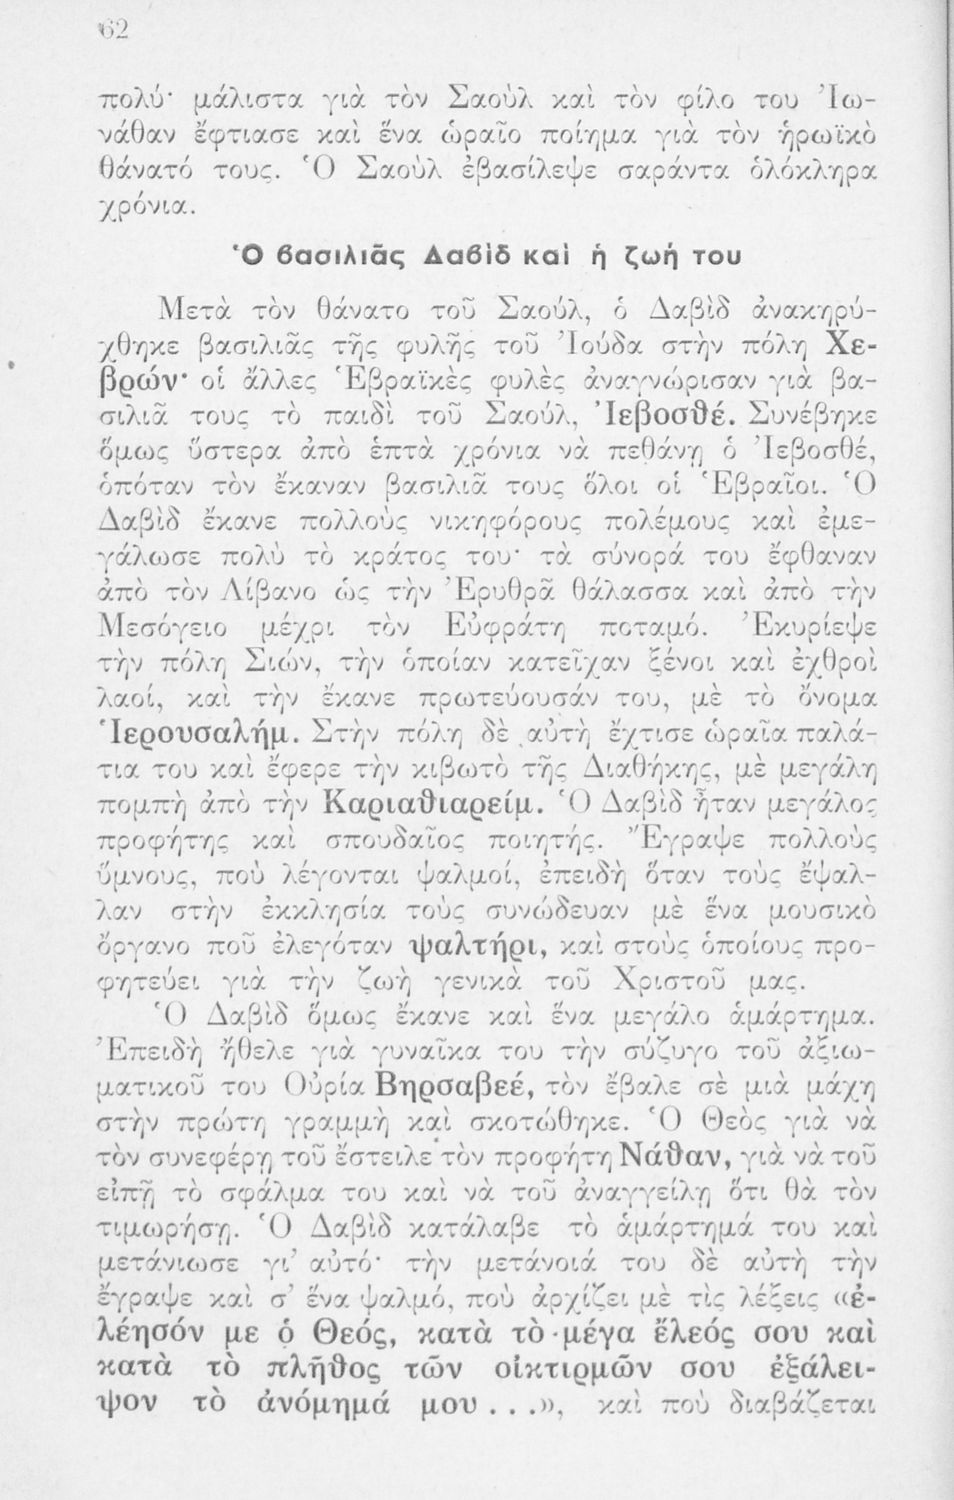 62
πολύ· μάλιστα γιὰ τὸν Σαοὺλ καὶ τὸν φίλο του Ἰω-
νάθαν ἔφτιασε καὶ ἕνα ὡραῖο ποίημα γιὰ τὸν ἡρωϊκὸ
θάνατό τους. Ὁ Σαοὺλ ἐβασίλεψε σαράντα ὁλόκληρα
χρόνια.
Ὁ βασιλιᾶς Δαβὶδ καὶ ἡ ζωή του
Μετὰ τὸν θάνατο τοῦ Σαούλ, ὁ Δαβὶδ ἀνακηρύ-
χθηκε βασιλιᾶς τῆς φυλῆς τοῦ Ἰούδα στὴν πόλη Χε-
βρών· οἱ ἄλλες Ἑβραϊκὲς φυλὲς ἀναγνώρισαν γιὰ βα-
σιλιᾶ τους τὸ παιδὶ τοῦ Σαούλ, Ἰεβοσθέ. Συνέβηκε
ὅμως ὕστερα ἀπὸ ἑπτὰ χρόνια νὰ πεθάνῃ ὁ Ἰεβοσθέ,
ὁπόταν τὸν ἔκαναν βασιλιᾶ τους ὅλοι οἱ Ἑβραῖοι. Ὁ
Δαβὶδ ἔκανε πολλοὺς νικηφόρους πολέμους καὶ ἐμε-
γάλωσε πολὺ τὸ κράτος του· τὰ σύνορά του ἔφθαναν
ἀπὸ τὸν Λίβανο ὡς τὴν Ἐρυθρᾶ θάλασσα καὶ ἀπὸ τὴν
Μεσόγειο μέχρι τὸν Εὐφράτη ποταμό. Ἐκυρίεψε
τὴν πόλη Σιών, τὴν ὁποίαν κατεῖχαν ξένοι καὶ ἐχθροὶ
λαοί, καὶ τὴν ἔκανε πρωτεύουσάν του, μὲ τὸ ὄνομα
Ἱερουσαλήμ. Στὴν πόλη δὲ αὐτὴ ἔχτισε ὡραῖα παλά-
τια του καὶ ἔφερε τὴν κιβωτὸ τῆς Διαθήκης, μὲ μεγάλη
πομπὴ ἀπὸ τὴν Καριαθιαρείμ. Ὁ Δαβὶδ ἦταν μεγάλος
προφήτης καὶ σπουδαῖος ποιητής. Ἔγραψε πολλοὺς
ὕμνους, ποὺ λέγονται ψαλμοί, ἐπειδὴ ὅταν τοὺς ἔψαλ-
λαν στὴν ἐκκλησία τοὺς συνώδευαν μὲ ἕνα μουσικὸ
ὄργανο ποῦ ἐλεγόταν ψαλτήρι, καὶ στοὺς ὁποίους προ-
φητεύει γιὰ τὴν ζωὴ γενικὰ τοῦ Χριστοῦ μας.
Ὁ Δαβὶδ ὅμως ἔκανε καὶ ἕνα μεγάλο ἁμάρτημα.
Ἐπειδὴ ἤθελε γιὰ γυναῖκα του τὴν σύζυγο τοῦ ἀξιω-
ματικοῦ του Οὐρία Βηρσαβεέ, τὸν ἔβαλε σὲ μιὰ μάχη
στὴν πρώτη γραμμὴ καὶ σκοτώθηκε. Ὁ Θεὸς γιὰ νὰ
τὸν συνεφέρῃ τοῦ ἔστειλε τὸν προφήτη Νάθαν, γιὰ νὰ τοῦ
εἰπῇ τὸ σφάλμα του καὶ νὰ τοῦ ἀναγγείλῃ ὅτι θὰ τὸν
τιμωρήσῃ. Ὁ Δαβὶδ κατάλαβε τὸ ἁμάρτημά του καὶ
μετάνιωσε γι' αὐτό· τὴν μετάνοιά του δὲ αὐτὴ τὴν
ἔγραψε καὶ σ' ἕνα ψαλμό, ποὺ ἀρχίζει μὲ τὶς λέξεις «ἐ-
λέησόν με ὁ Θεός, κατὰ τὸ μέγα ἔλεός σου καὶ
κατὰ τὸ πλῆθος τῶν οἰκτιρμῶν σου ἐξάλει-
ψον τὸ ἀνόμημά μου . . .», καὶ ποὺ διαβάζεται